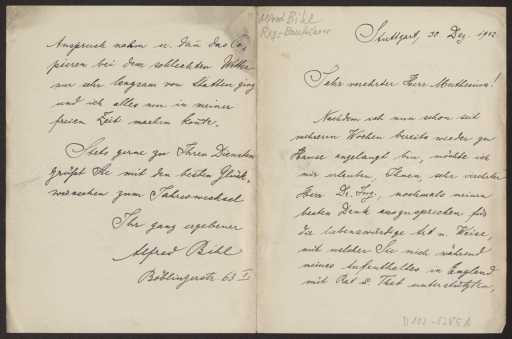 Alfred Bihl
Reg-Bauführer
Stuttgart, 30 Dez. 1902
Sehr verehrter Herr Muthesius!
Nachdem ich nun schon seit
mehreren Wochen bereits wieder zu
Hause angelangt bin, möchte ich
mir erlauben, Ihnen, sehr verehrter
Herr Dr. Ing., nochmals meinen
besten Dank auszusprechen für
die liebenswürdige Art u. Weise,
mit welcher Sie mich während
meines Aufenthaltes in England
mit Rat & That unterstützten,
Anspruch nahm u. dan das
pieren bei dem schlechten Wetter
nur sehr langsam von Statten ging
und ich alles nur in meiner
freien Zeit machen konnte.
Stets gerne zu Ihren Diensten
grüßt Sie mit den besten Glück-
wünschen zum Jahreswechsel
Ihr ganz ergebener
Alfred Bihl
Böblingerstr. 63 I
D 102-5285 A